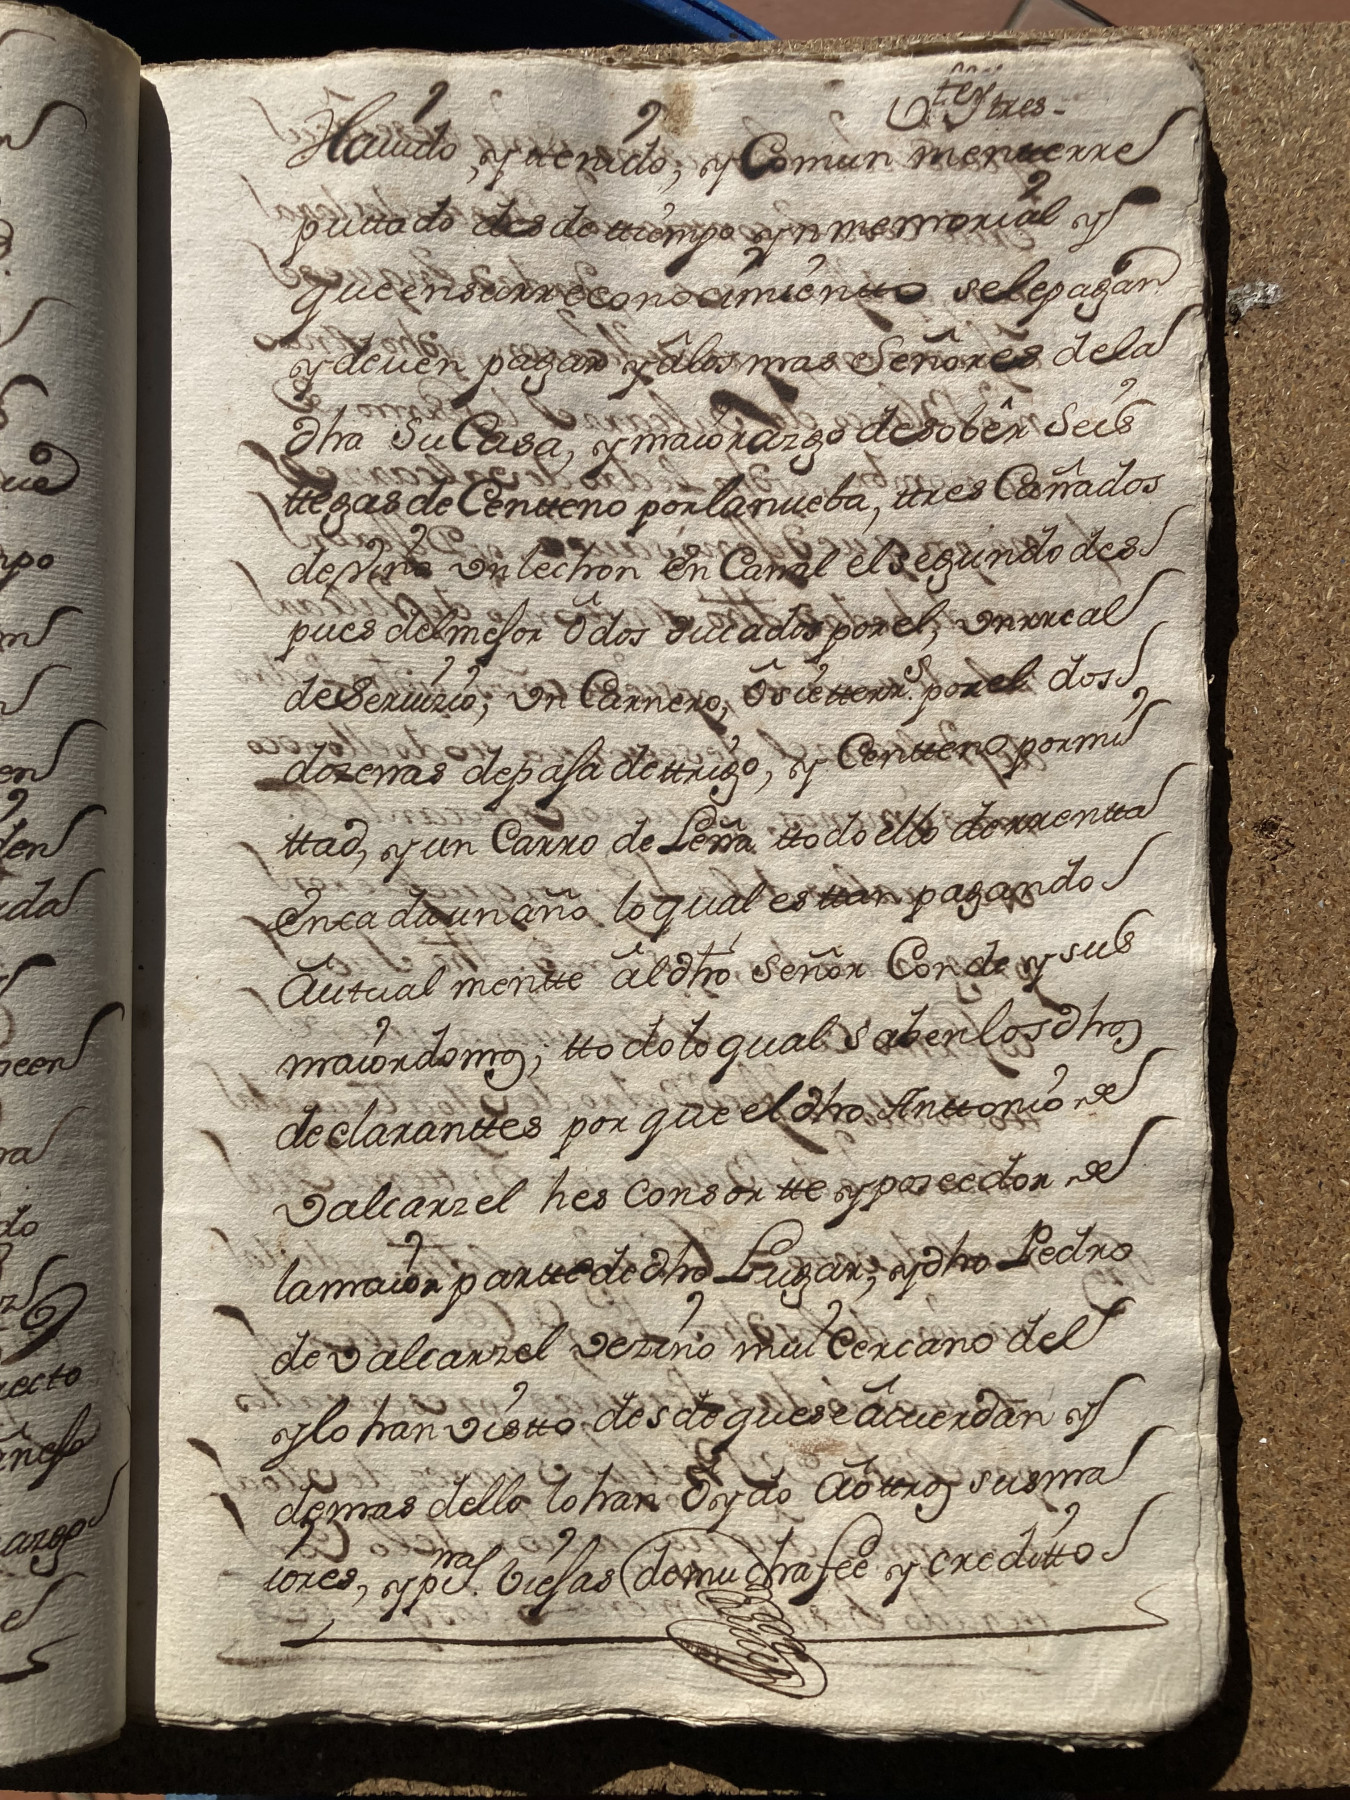 tres.
Hauido, y ttenido, y Comun mentterre
puttado desde ttiempo ynmemorial y
que en su rreconocimientto se le pagan
y deuen pagar y â los mas Señores de la
dha Su Casa, y maiorazgo de sobêr Seis
ttegas de Centteno por la nueba, ttres Cañados
de vino Vn lechon en Canal el segundo des
pues del mejor ô dos ducados por el, vn rreal
de Seruizio, Vn Carnero, ô siette rrs. por el dos
dozenas de paja de ttrigo, y Centteno por mi
ttad, y un Carro de Leña ttodo ello de rrentta
en cada un año lo qual esttan pagando
Autual mentte âl dho Señor Conde y sus
maiordomos; ttodo lo qual saben los dhos
declaranttes por que el dho Anttonio de
Valcarzel hes consortte y poseedor de
la maior partte de dho Lugar, y dho Pedro
de Valcarzel vezino mui Cercano del
y lo han visto desde que se âcuerdan y
demas dello lo han ôydo â ôttros sus ma
iores, y perssnas viejas de mucha fee y creditto